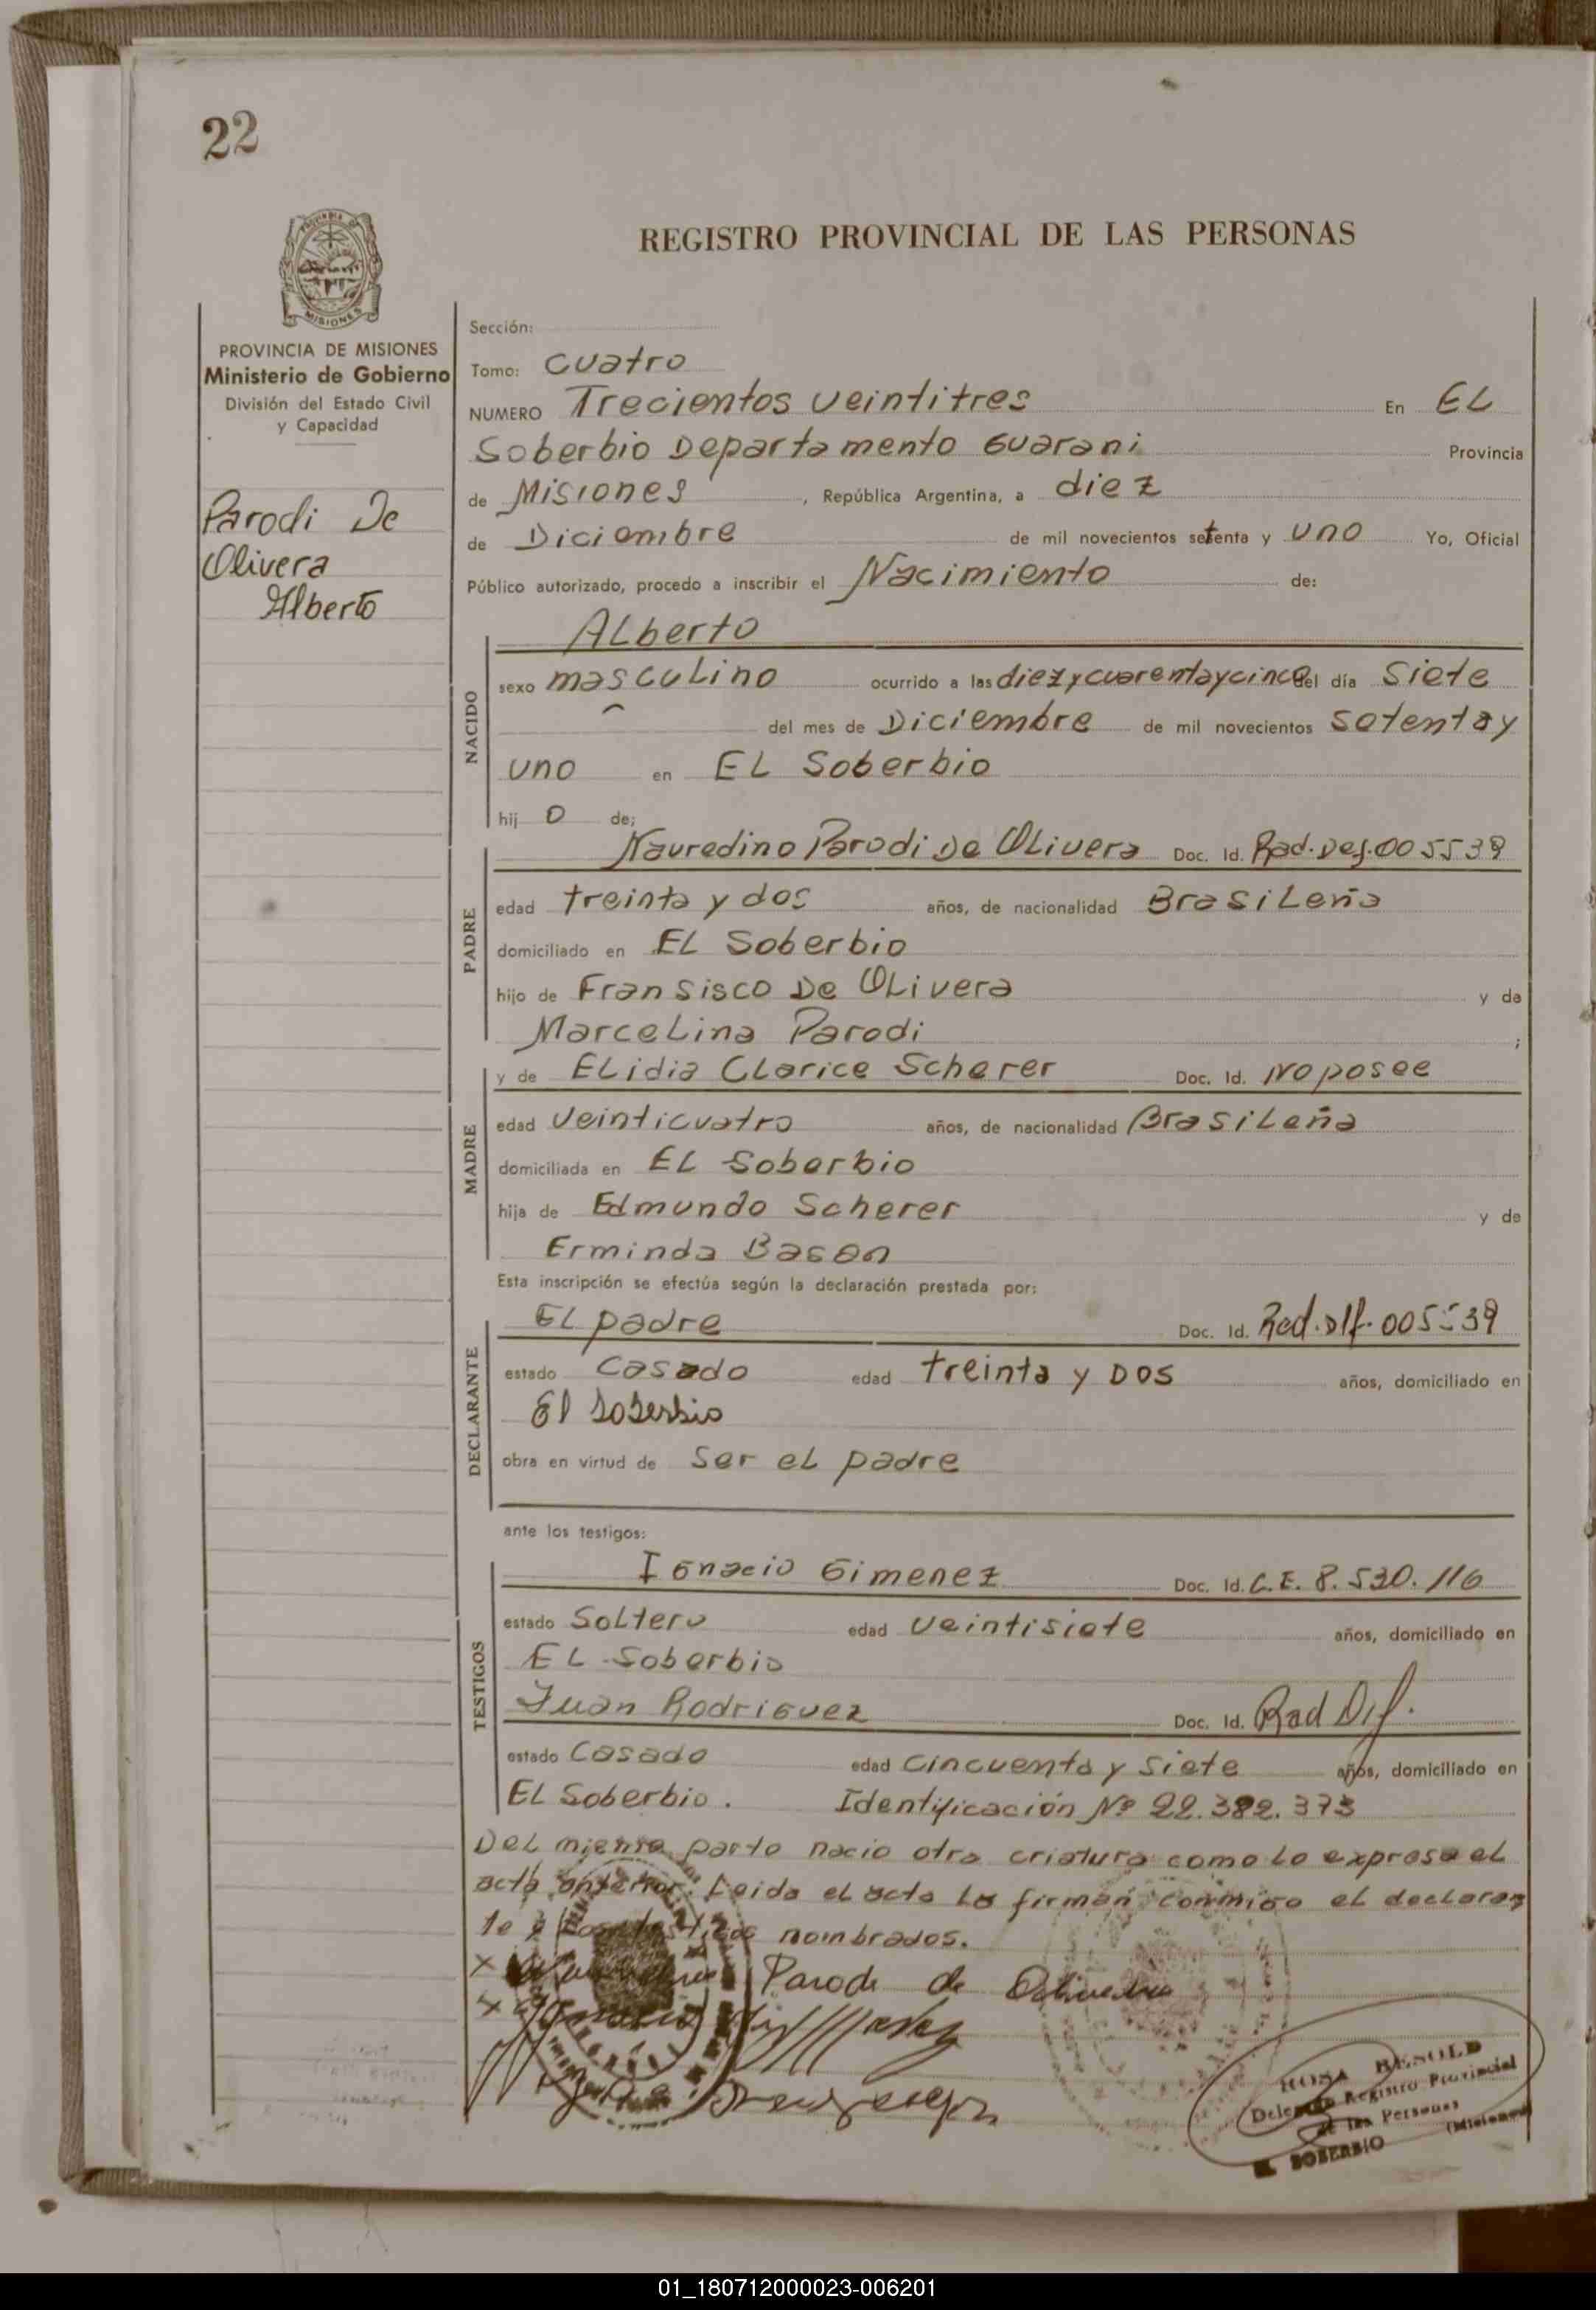 22
REGISTRO PROVINCIAL DE LAS PERSONAS
PROVINCIA DE MISIONES
Ministerio de Gobierno
División del Estado Civil
y Capacidad
Parodi De
Olivera
Alberto
Sección:
Tomo: cuatro
NUMERO Trecientos veintitres En EL
Soberbio Departamento Guarani Provincia
de Misiones, República Argentina, a diez
de Diciembre de mil novecientos setenta y uno Yo, Oficial
Público autorizado, procedo a inscribir el Nacimiento de:
NACIDO
ALberto
sexo mascuLino ocurrido a las diez y cuarenta y cinco del día Siete
del mes de Diciembre de mil novecientos setenta y
uno en EL Soberbio
hij o de;
PADRE
Nauredino Parodi De OLivera Doc. Id. Rad. Def. 005539
edad treinta y dos años, de nacionalidad BrasiLeña
domiciliado en EL Soberbio
hijo de Fransisco De OLivera y de
MarceLina Parodi ;
MADRE
y de ELidia CLarice Scherer Doc. Id. No posee
edad veinticuatro años, de nacionalidad BrasiLeña
domiciliada en EL Soberbio
hija de Edmundo Scherer y de
Erminda Basen
Esta inscripción se efectúa según la declaración prestada por:
DECLARANTE
EL padre Doc. Id. Rad. Dlf. 005539
estado casado edad treinta y DOS años, domiciliado en
El Soberbio
obra en virtud de Ser eL padre
ante los testigos:
TESTIGOS
Ignacio Gimenez Doc. Id. C.E. 8.530.116
estado SoLtero edad veintisiete años, domiciliado en
EL Soberbio
Juan Rodriguez Doc. Id. Rad Dif.
estado Casado edad cincuenta y siete años, domiciliado en
EL Soberbio. Identificación Nº 22.382.373
DeL mismo parto nacio otra criatura como Lo expresa eL
acta anterior. Leida eL acta La firman conmigo el declaran
te y Los testigos nombrados.
x Parodi de Oliveira
x Ignacio
ROSA BESOLD
Delegada Registro Provincial
de las Personas
EL SOBERBIO (Misiones)
01_180712000023-006201